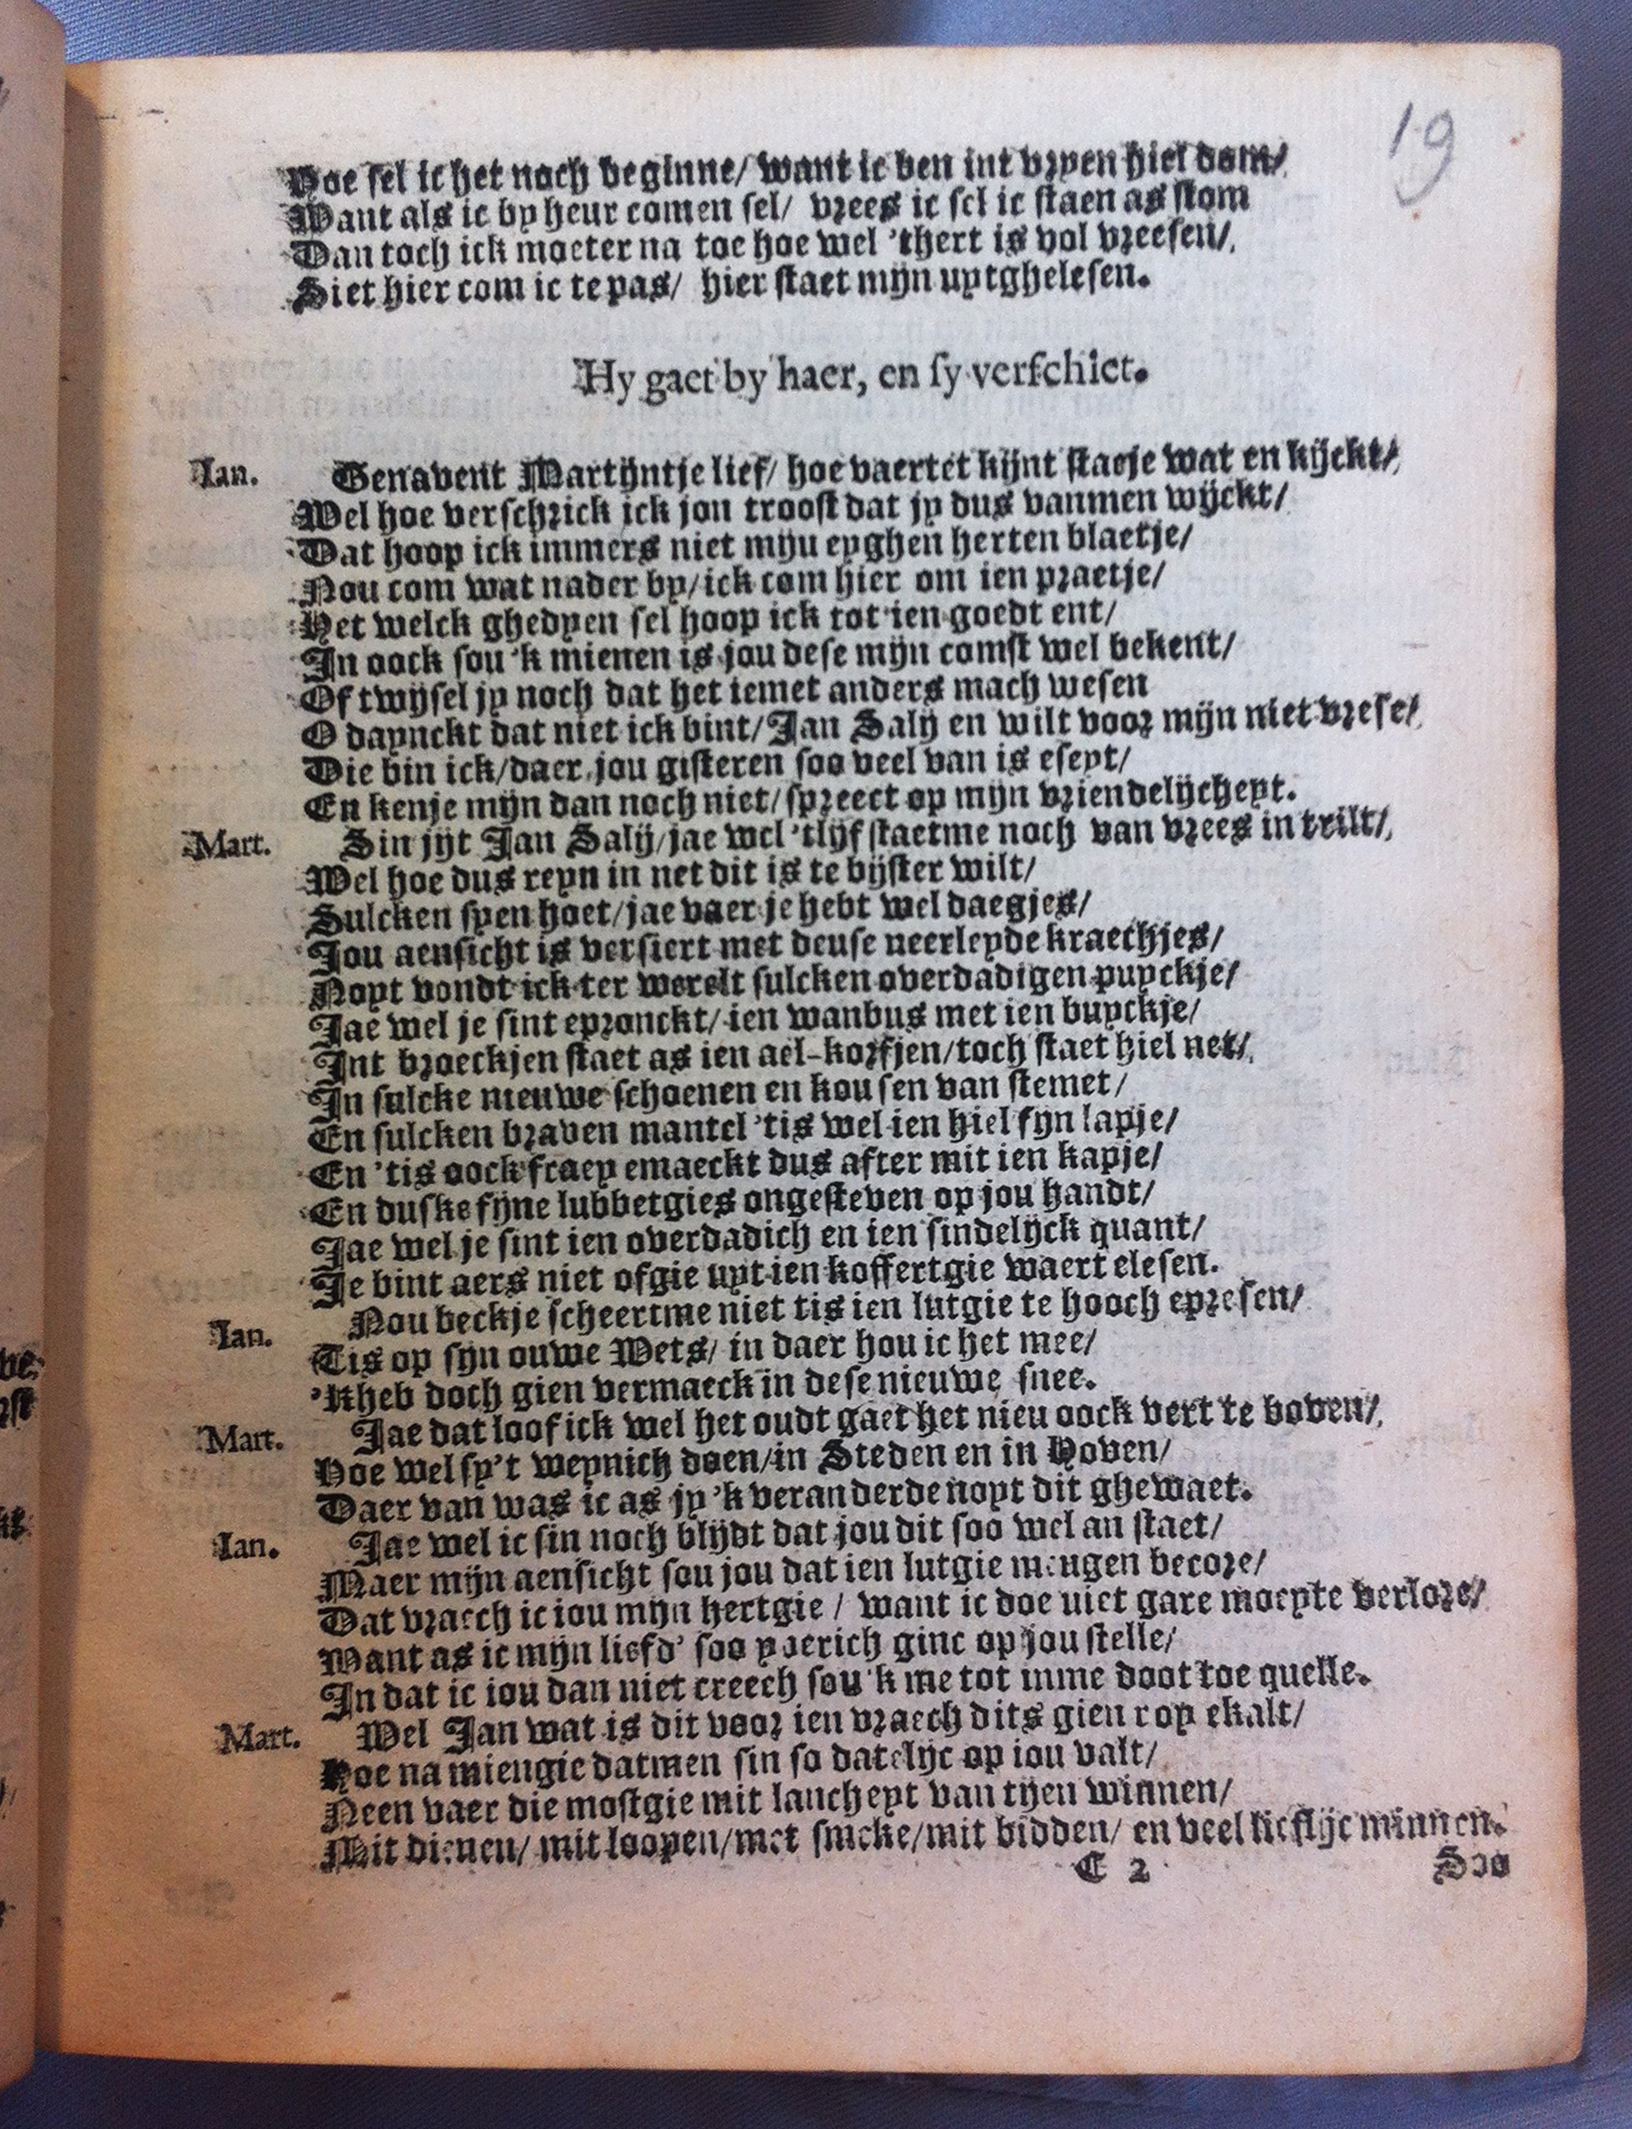 19
Hoe sel ic het noch beginne/ want ic ben int vryen hiel dom/
Want als ic by heur comen sel/ vrees ic sel ic staen as stom
Dan toch ick moeter na toe hoe wel 'thert is vol vreesen/
Siet hier com ic te pas/ hier staet mijn uytghelesen.
Hy gaet by haer, en sy verschiet.
Ian. Genavent Martijntje lief/ hoe vaertet kijnt staeje wat en kijckt/
Wel hoe verschrick ick jou troost dat jy dus vanmen wijckt/
Dat hoop ick immers niet mijn eyghen herten blaetje/
Nou com wat nader by/ ick com hier om ien praetje/
Het welck ghedyen sel hoop ick tot ien goedt ent/
In oock sou 'k mienen is jou dese mijn comst wel bekent/
Of twijfel jy noch dat het iemet anders mach wesen
O daynckt dat niet ick bint/ Jan Salij en wilt voor mijn niet vrese/
Die bin ick/ daer jou gisteren soo veel van is eseyt/
En kenje mijn dan noch niet/ spreect op mijn vriendelijcheyt.
Mart. Sin jijt Jan Salij/ jae wel 'tlijf staetme noch van vrees in trilt/
Wel hoe dus reyn in net dit is te bijster wilt/
Sulcken syen hoet/ jae vaer je hebt wel daegjes/
Jou aensicht is versiert met deuse neerleyde kraechjes/
Noyt vondt ick ter werelt sulcken overdadigen puyckje/
Jae wel je sint epronckt/ ien wanbus met ien buyckje/
Int broeckjen staet as ien ael-korfjen/ toch staet hiel net/
In sulcke nieuwe schoenen en kousen van stemet/
En sulcken braven mantel 'tis wel ien hiel fyn lapje/
En 'tis oock fraey emaeckt dus after mit ien kapje/
En duske fijne lubbetgies ongesteven op jou handt/
Jae wel je sint ien overdadich en ien sindelijck quant/
Je bint aers niet ofgie uyt ien koffertgie waert elesen.
Ian. Nou beckje scheertme niet tis ien lutgie te hooch epresen/
Tis op sijn ouwe Wets/ in daer hou ic het mee/
'Kheb doch gien vermaeck in dese nieuwe snee.
Mart. Jae dat loof ick wel het oudt gaet het nieu oock vert te boven/
Hoe wel sy't weynich doen/ in Steden en in Hoven/
Daer van was ic as jy 'k veranderde noyt dit ghewaet.
Ian. Jae wel ic sin noch blijdt dat jou dit soo wel an staet/
Maer mijn aensicht sou jou dat ien lutgie meugen becore/
Dat vraech ic iou mijn hertgie / want ic doe niet gare moeyte verlore/
Want as ic mijn liefd' soo yverich ginc op jou stelle/
In dat ic iou dan niet creech sou 'k me tot mme doot toe quelle.
Mart. Wel Jan wat is dit voor ien vraech dits gien rop ekalt/
Hoe na miengie datmen sin so datelijc op iou valt/
Neen vaer die mostgie mit lancheyt van tijen winnen/
Mit dienen/ mit loopen/ met smeke/ mit bidden/ en veel lieflijc minnen.
C 2 Soo